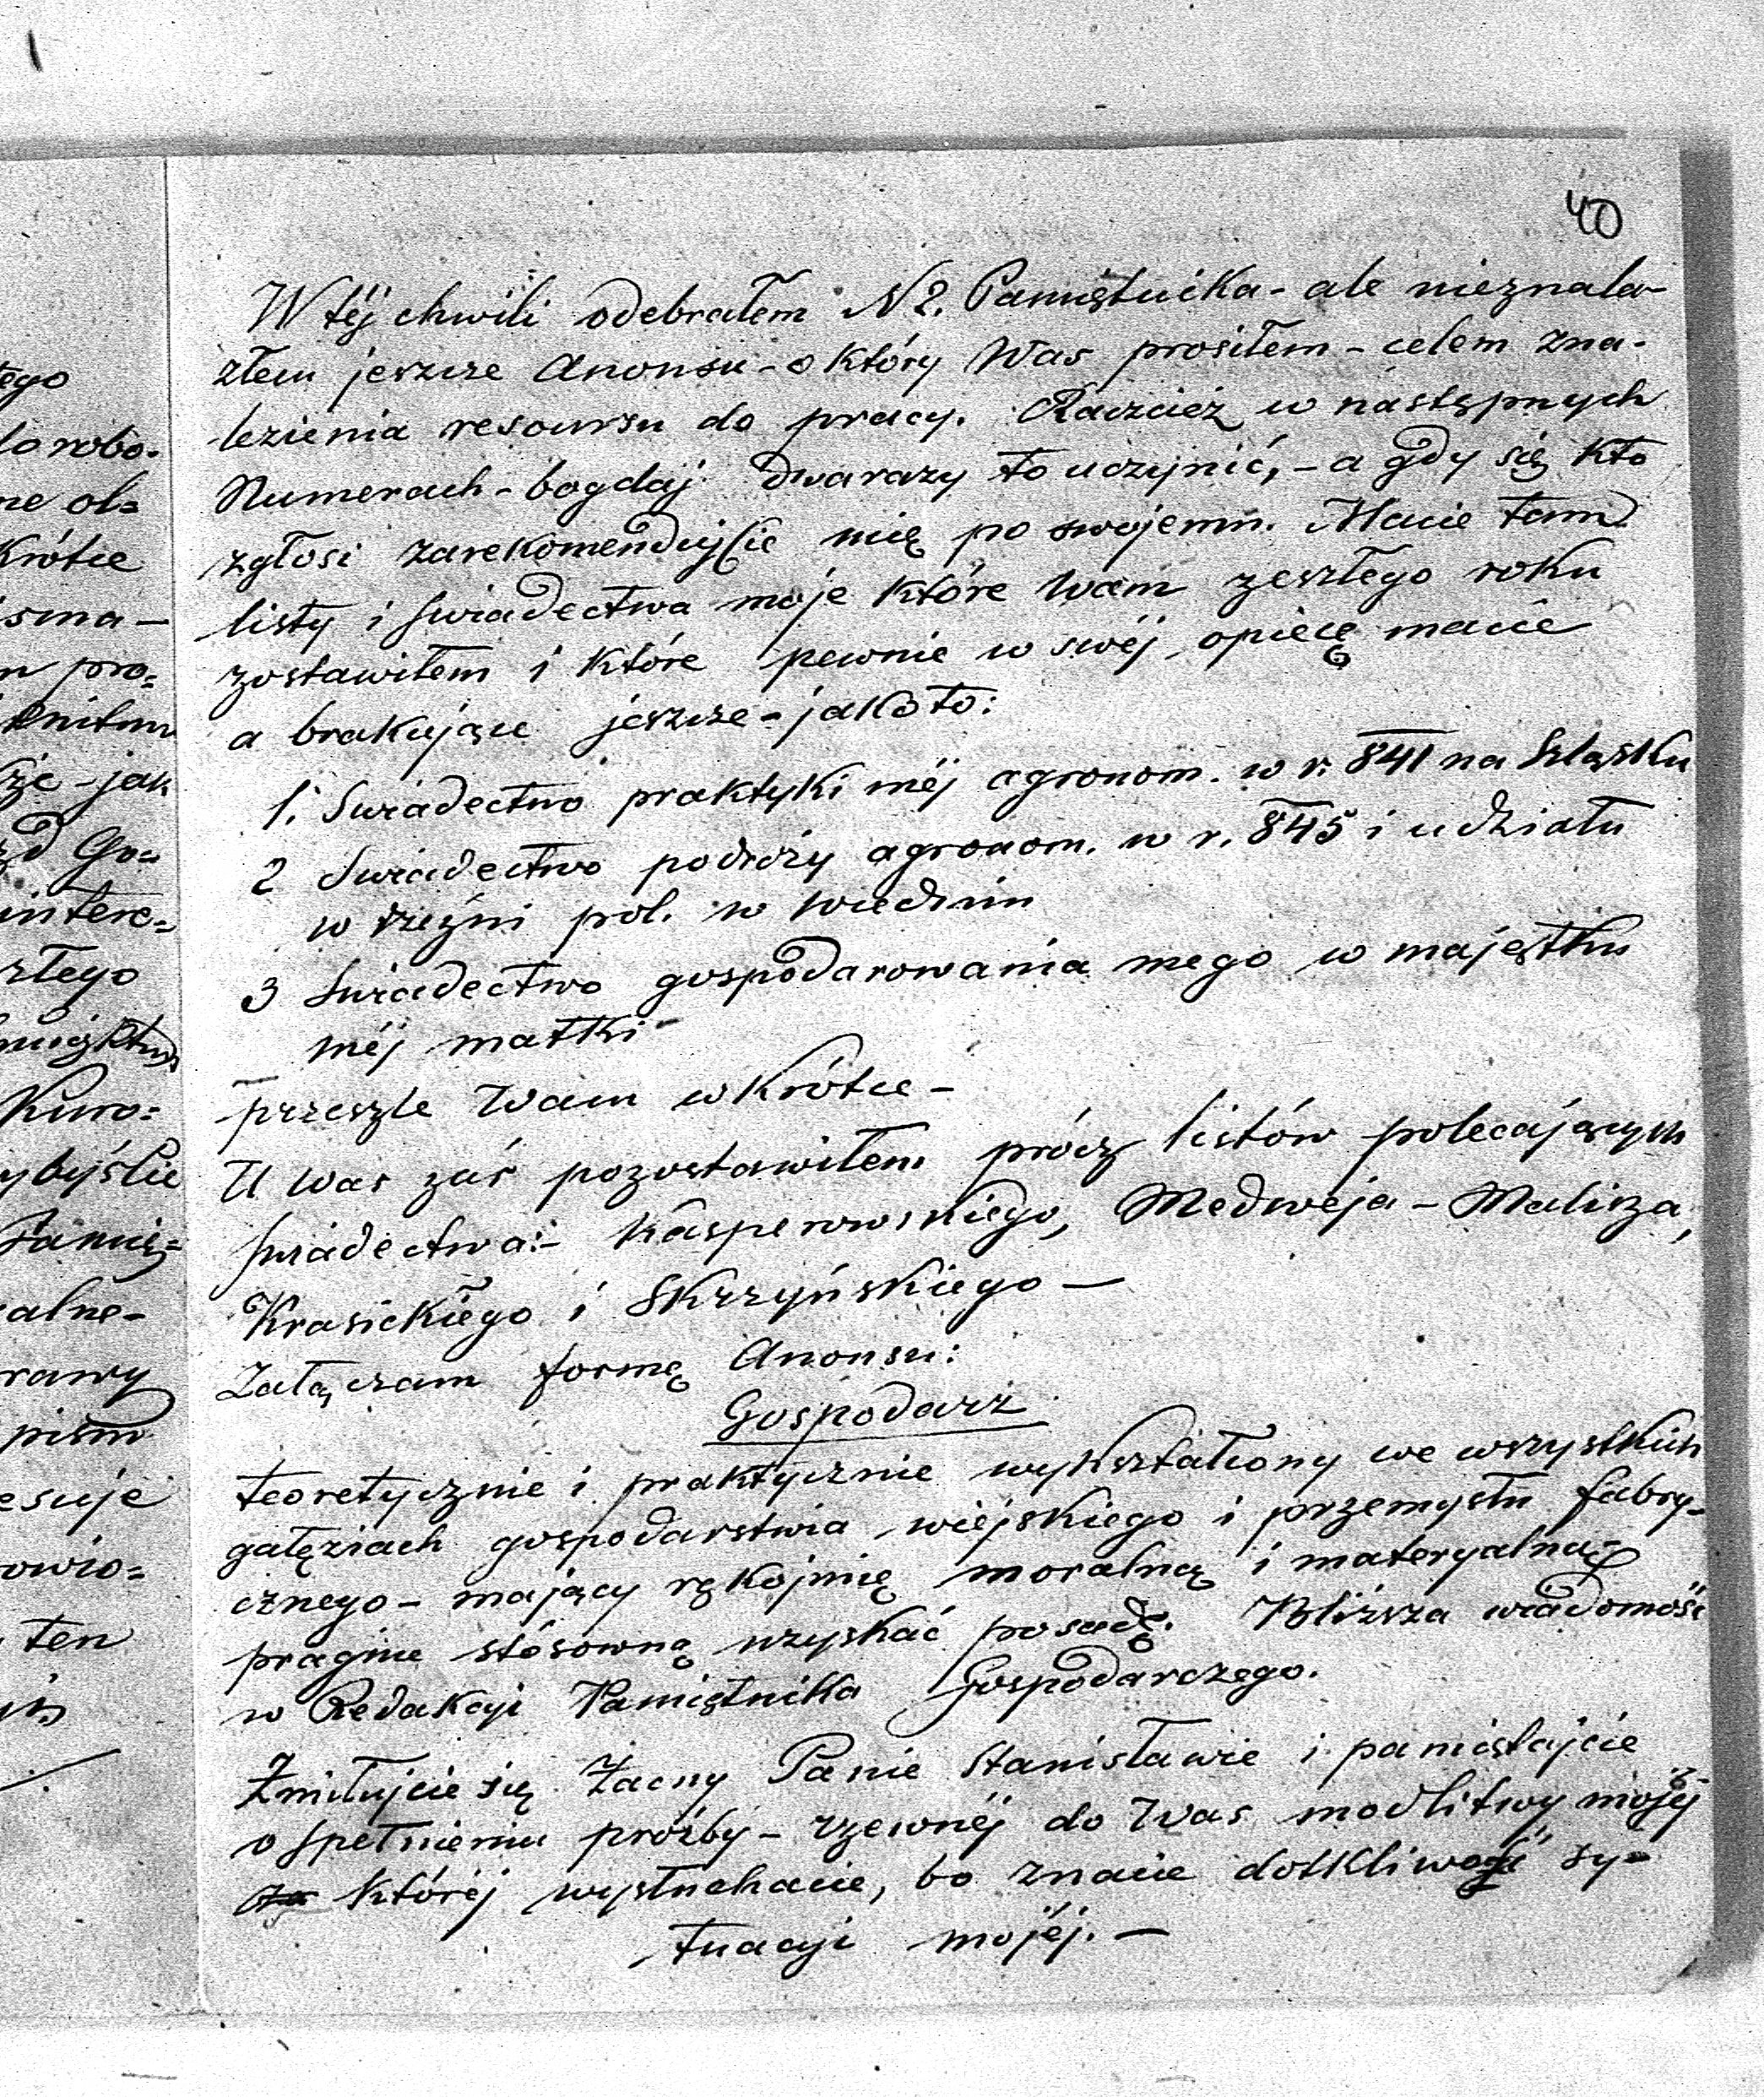 40
W téj chwili odebrałem N 2. Pamiętnika - ale nieznala-
złem jeszcze Anonsu - o który Was prosiłem - celem zna-
lezienia resoursu do pracy. Raczcież w następnych
Numerach - bogdaj dwarazy to uczynić, - a gdy się kto
zgłosi zarekomendujcie mię po swojemu. Macie tam
listy i swiadectwa moje które Wam zeszłego roku
zostawiłem i które pewnie w swéj opiece macie
a brakujące jeszcze - jako to:
1. Swiadectwo praktyki méj agronom. w r. 841 na Szląsku
2 Swiadectwo podróży agronom. w r. 845 i udziału
w rzeźni pol. w Wiedniu
3 Swiadectwo gospodarowania mego w majątku
méj matki -
przeszle Wam wkrótce -
U Was zaś pozostawiłem prócz listów polecających
swiadectwa:- Kasperowskiego, Medweja - Malisza,
Krasickiego i Skrzyńskiego -
Załączam formę Anonsu:
Gospodarz
teoretycznie i praktycznie wykształcony we wszystkich
gałęziach gospodarstwa wiejskiego i przemysłu fabry-
cznego - mający rękojmię moralną i materyalną -
pragnie stósowną uzyskać posadę. Bliższa wiadomość
w Redakcyi Pamiętnika Gospodarczego.
Zmiłujcie się Zacny Panie Stanisławie i pamiętajcie
o spełnieniu prośby - rzewnéj do Was modlitwy mojéj
któréj wysłuchacie, bo znacie dotkliwość sy-
tuacyi mojéj. -
tego
do robo-
ne ol=
krótce
isma -
n pro=
że - jak
Go=
intere=
złego
Kuro=
ybyście
Pamię=
alne-
rawy
pism
esuje
owio=
ten